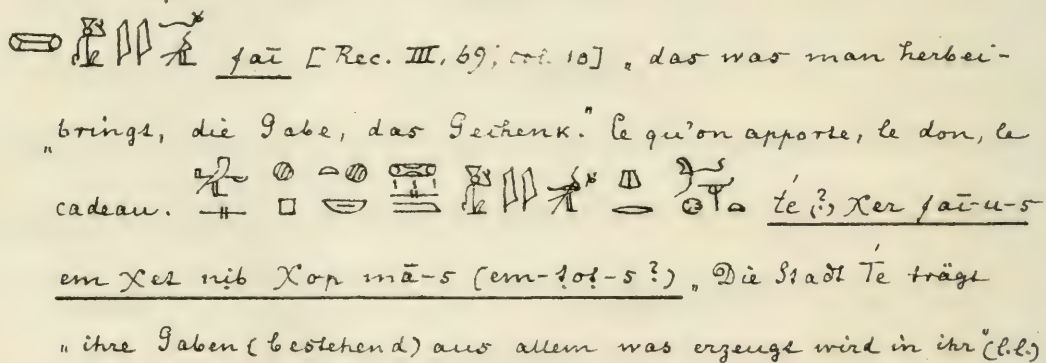 faī [Rec. III, 69; col. 10] „das was man herbei-
„bringt, die Gabe, das Geschenk.“ Ce qu'on apporte, le don, le
cadeau. té (?) χer faī-u-s
em χet nib χop mā-s (em-ṭot-s?) „Die Stadt Té trägt
„ihre Gaben (bestehend) aus allem was erzeugt wird in ihr“ (l.l.)